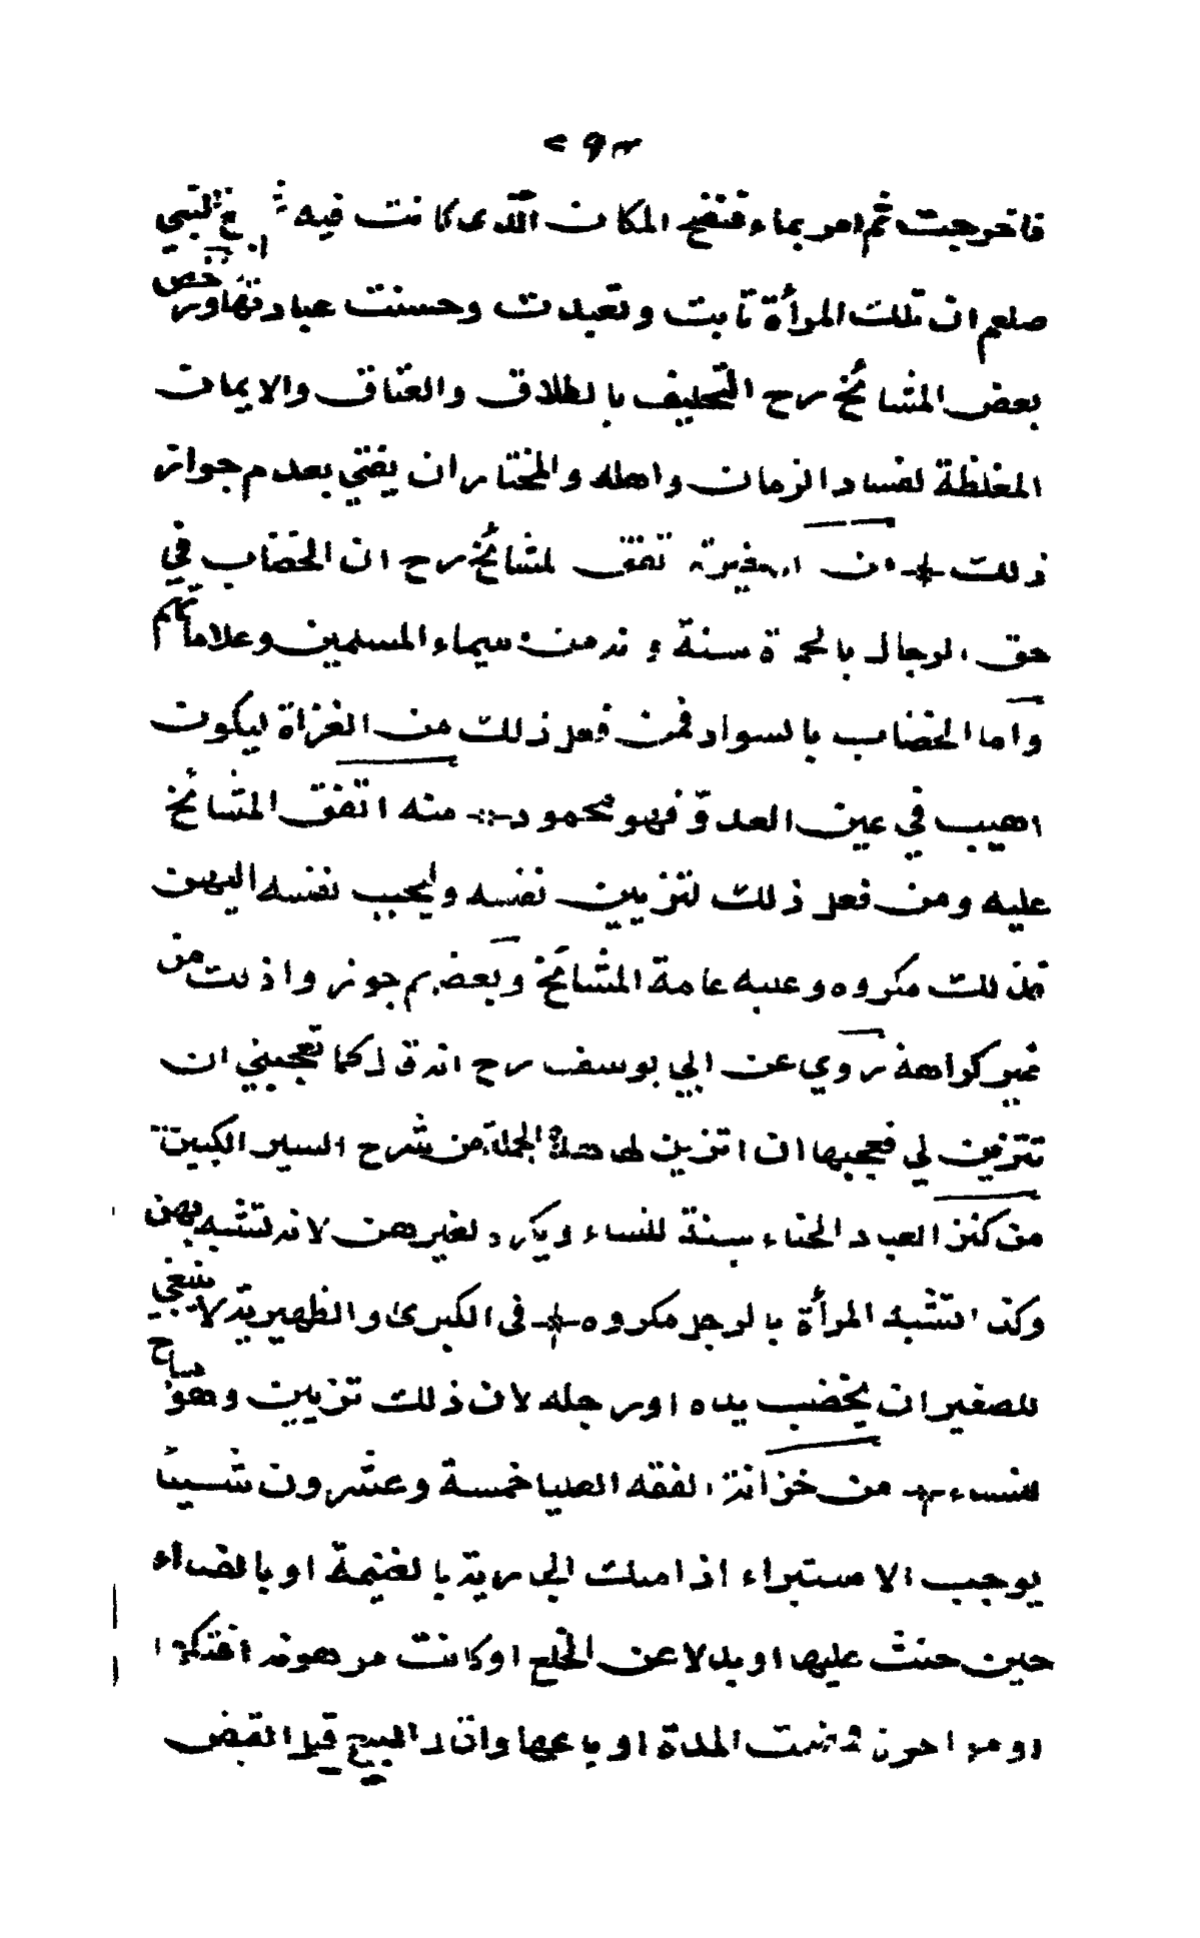 ٢٩٣
فاخرجت ثم امر بماء فنضح المكان الذى كانت فيه النبي
صلعم ان تلك المرأة تابت وتعبدت وحسنت عبادتها ورخص
بعض المشائخ رح التحليف بالطلاق والعتاق والايمان
المغلظة لفساد الزمان واهله والمختار ان يفتي بعدم جواز
ذلك اتفق لمشائخ رح ان الخضاب في
حق الرجال بالحمرة سنة وانه من سيماء المسلمين وعلاماتهم
واما الخضاب بالسواد فمن فعل ذلك من الغزاة ليكون
اهيب في عين العدو فهو محمود منه اتفق المشائخ
عليه ومن فعل ذلك لتزيين نفسه وليحبب نفسه اليهن
فذلك مكروه وعليه عامة المشائخ وبعضهم جوزوا ذلك من
غير كراهة روي عن ابي يوسف رح انه قال كما تعجبني ان
تتزين لي فيعجبها ان اتزين لها هذه الجملة من شرح السير الكبير
من كنز العباد الحناء سنة للنساء ويكره لغيرهن لانه تشبه بهن
وكذا تشبه المرأة بالرجل مكروه في الكبرى والظهيرية لا ينبغي
للصغير ان يخضب يده او رجله لان ذلك تزيين وهو مباح
للنساء من خزانة الفقه العليا خمسة وعشرون شيئا
يوجب الاستبراء اذا ملك الجارية بالغنيمة او بالفداء
حين حنث عليها او بدلا عن الخلع او كانت مرهونة افتكها
المدة او باعها واقال البيع قبل القبض